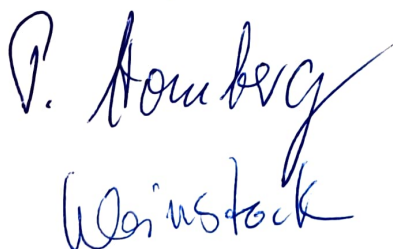 P. Homberg
Weinstock